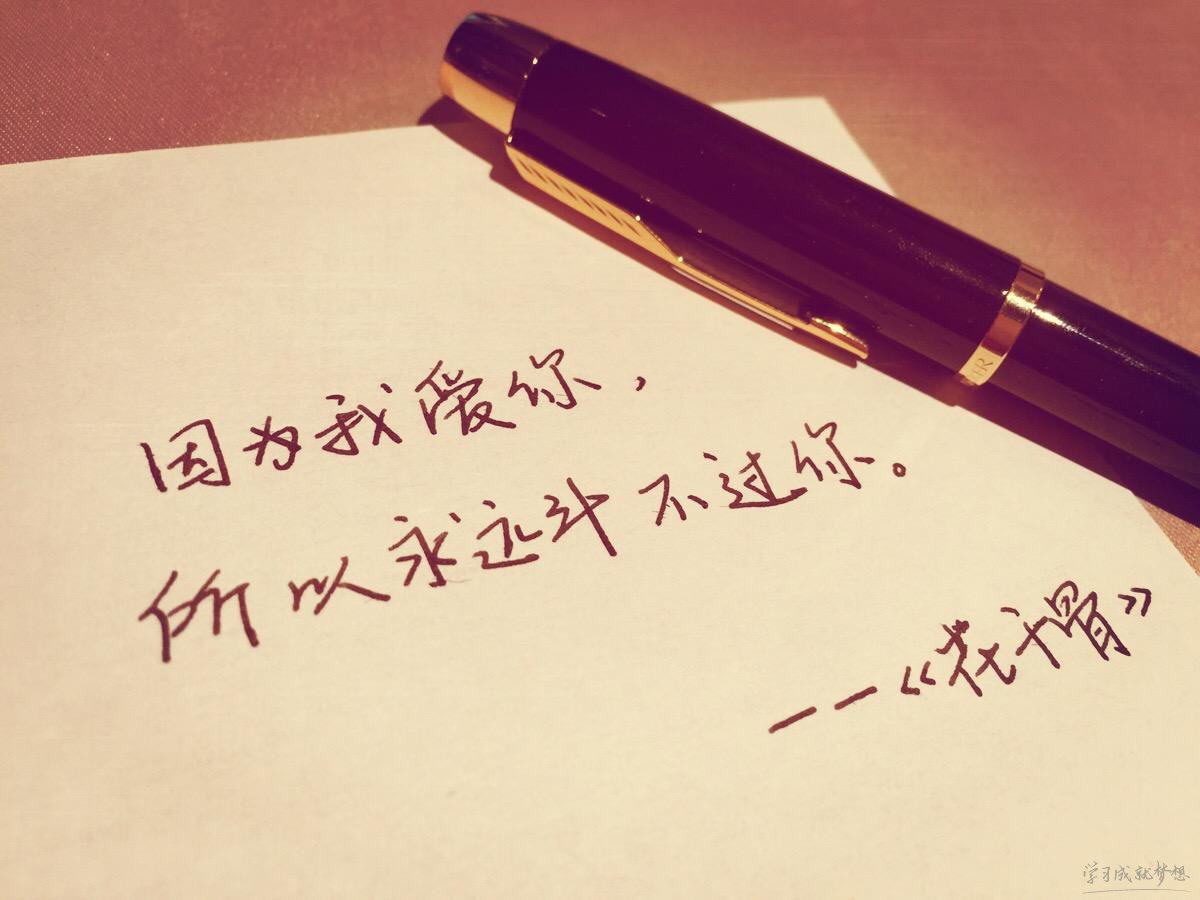 因为我爱你，
所以永远斗不过你。
——《花千骨》
学习成就梦想